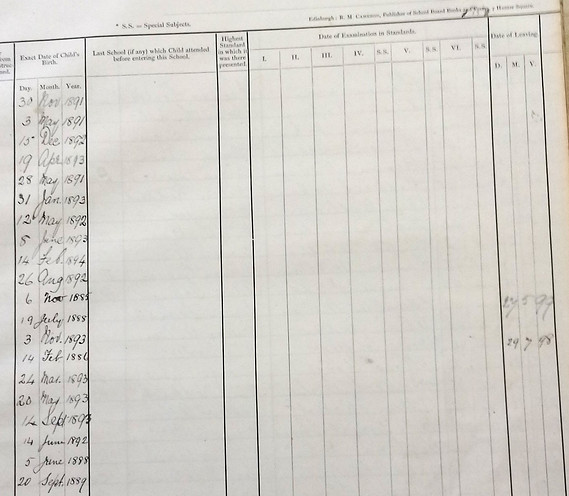 * S.S. = Special Subjects.
Edinburgh: R. M. Publisher of School Board Books and Hanover Square.
Exact Date of Child's Birth.
Last School (if any) which Child attended before entering this School.
Highest Standard in which it was there presented.
Date of Examination in Standards.
Date of Leaving
I. II. III. IV. S.S. V. S.S. VI. S.S.
Day. Month. Year.
D. M. Y.
30 Nov 1891
3 May 1891
15 Dec 1892
19 Apr 1893
28 May 1891
31 Jan. 1893
12 May 1892
8 June 1893
14 Feb. 1894
26 Aug 1892
6 Nov 1885 27 5 97
19 July 1888
3 Nov. 1893 29 7 98
14 Feb 1886
24 Mar. 1893
20 May 1893
14 Sept 1893
14 June 1892
5 June 1888
20 Sept. 1889